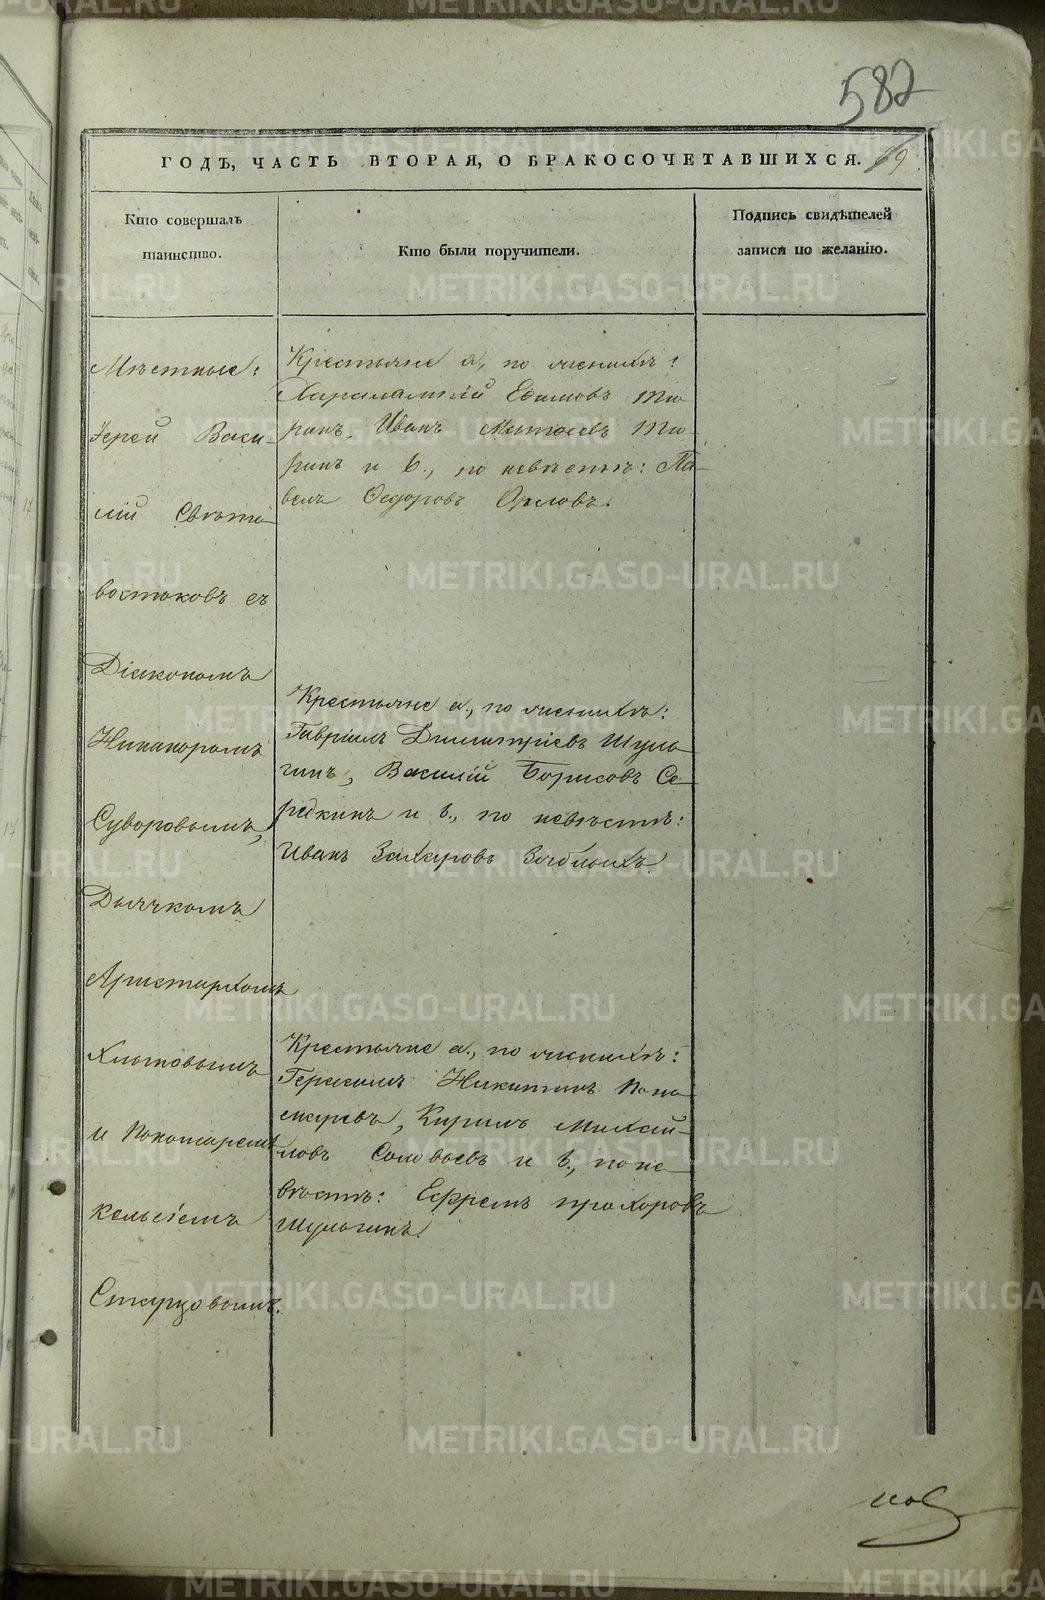 582
ГОДЪ, ЧАСТЬ ВТОРАЯ, О БРАКОСОЧЕТАВШИХСЯ. 69
Кто совершалъ
таинство.
Кто были поручители.
Подпись свидѣтелей
записи по желанію.
Мѣстные:
Іерей Васи-
лій Свѣто-
востоковъ съ
Діакономъ
Никаноромъ
Суворовымъ,
Дьячкомъ
Аристархомъ
Хлыновымъ
и Пономаремъ
Кельсіемъ
Старцовымъ.
Крестьяне а., по женихѣ:
Харалампій Ефимовъ
Иванъ
и б., по невѣстѣ: Па-
велъ Ѳедоровъ Орловъ.
Крестьяне а., по женихѣ:
Гавріилъ Димитріевъ Шуль-
гинъ, Василій Борисовъ Се-
редкинъ и б., по невѣстѣ:
Иванъ Захаровъ
Крестьяне а., по женихѣ:
Герасимъ Никитинъ Поно-
маревъ, Кирилъ Михай-
ловъ Соловьевъ и б., по не-
вѣстѣ: Ефремъ Прохоровъ
Шульгинъ.
METRIKI.GASO-URAL.RU